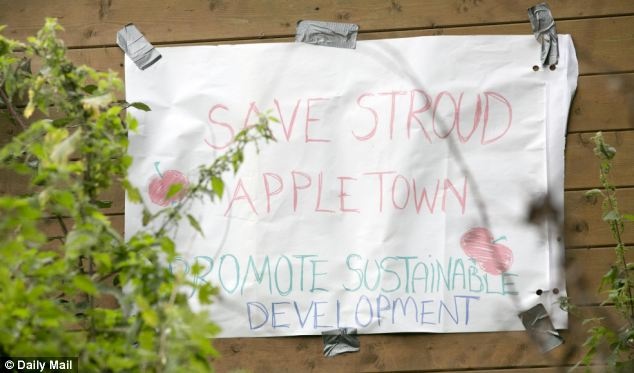 SAVE STROUD
APPLETOWN
PROMOTE SUSTAINABLE
DEVELOPMENT
© Daily Mail